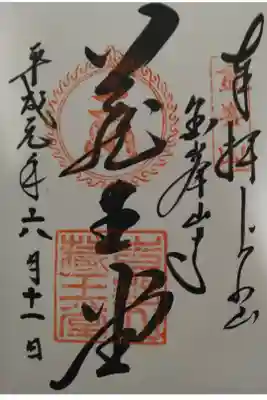 奉拝 よしの山
金峯山寺
蔵王堂
平成元年六月十一日